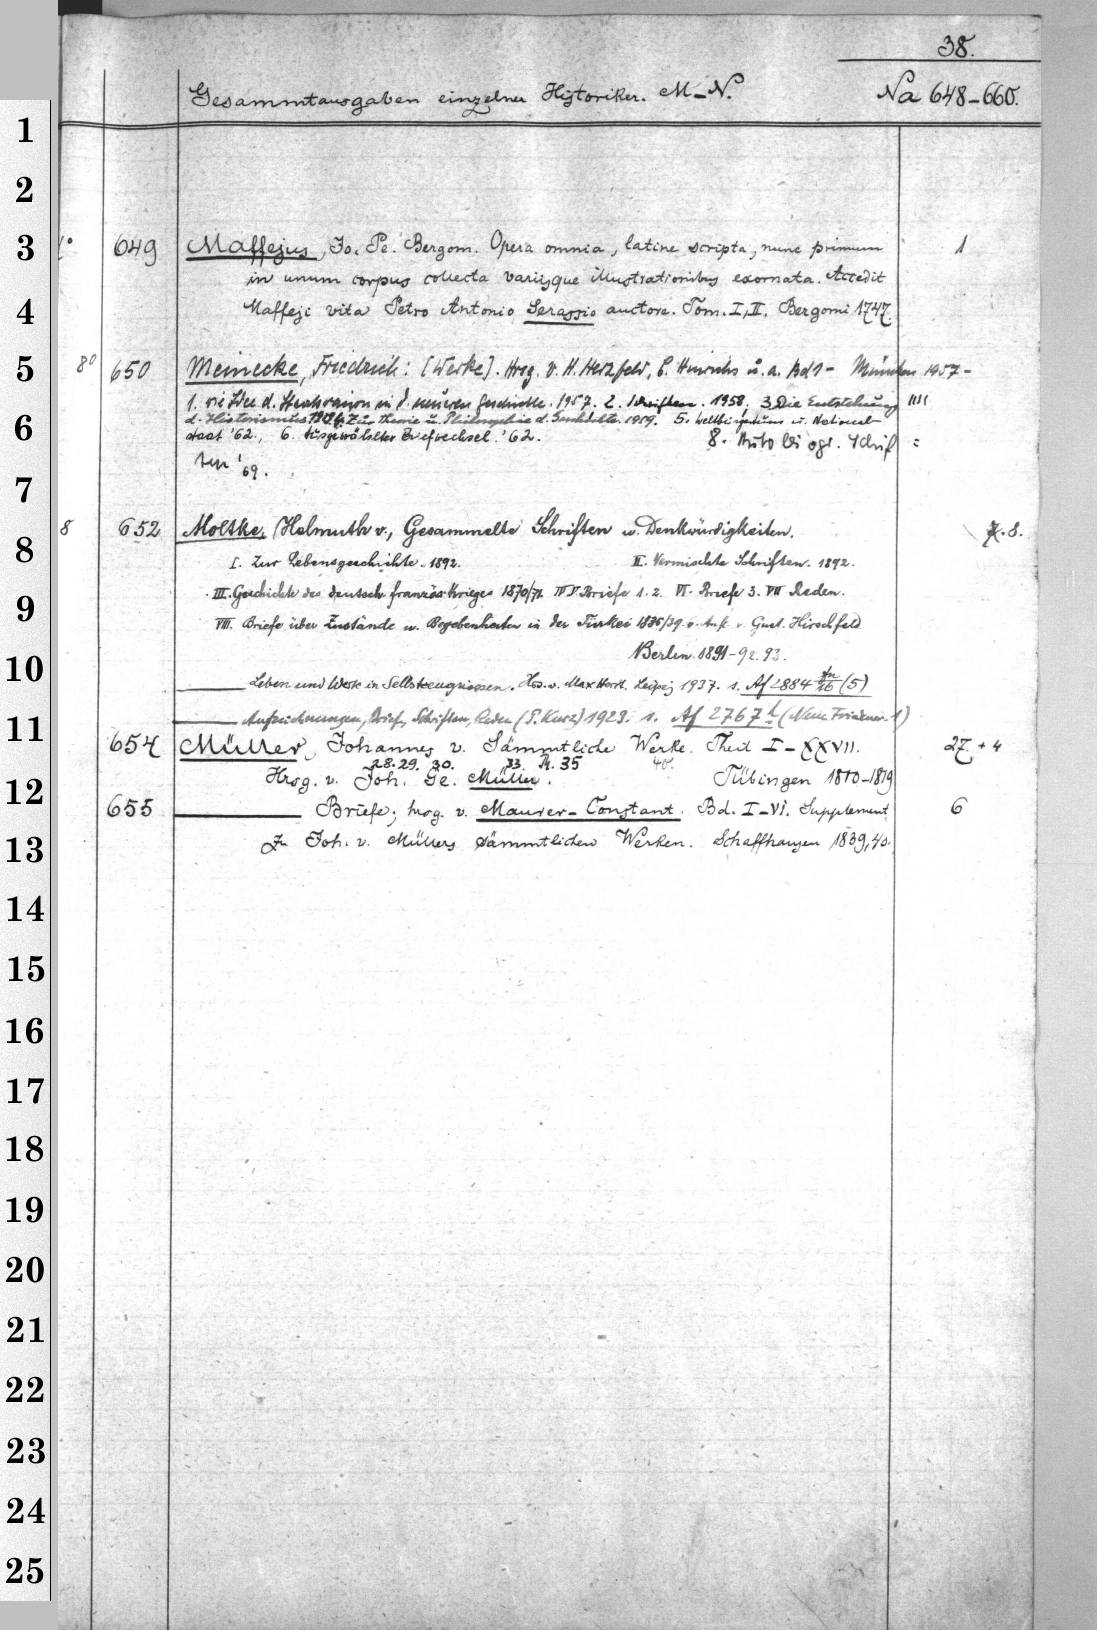 38.
Gesammtausgaben einzelner Historiker. M-N. Na 648-660.
4° 649 Maffejus, Jo. Pe. Bergom. Opera omnia, latine scripta, nunc primum 1
in unum corpus collecta variisque illustrationibus exornata. Accedit
Maffeji vita Petro Antonio Serassio auctore. Tom. I, II. Bergomi 1747.
8° 650 Meinecke, Friedrich: [Werke]. Hrsg. v. H. Herzfeld, C. Hinrichs u. a. Bd 1- München 1957-
1. Die Idee d. Staatsräson in d. neueren Geschichte. 1957. 2. Schriften. 1958. 3. Die Entstehung IIII
d. Historismus 1959. 4. Zur Theorie u. Philosophie d. Geschichte. 1959. 5. Weltbürgertum u. National-
staat '62. 6. Ausgewählter Briefwechsel. '62. 8. Autobiogr. Schrif =
ten '69.
8 652 Moltke, Helmuth v., Gesammelte Schriften u. Denkwürdigkeiten. 8.
I. Zur Lebensgeschichte. 1892. II. Vermischte Schriften. 1892.
III. Geschichte des deutsch französ. Krieges 1870/71. IV V. Briefe 1. 2. VI. Briefe 3. VII Reden.
VIII. Briefe über Zustände u. Begebenheiten in der Türkei 1835/39. v. Gust. Hirschfeld
Berlin. 1891-92. 93.
Leben und Werk in Selbstzeugnissen. Leipzig 1937. 1. Af 2884 (5)
Aufzeichnungen, Briefe, Schriften, Reden 1923. 1. Af 2767
654 Müller, Johannes v. Sämmtliche Werke. Theil I-XXVII. 27. + 4
28. 29. 30. 33. 35 40.
Hrsg. v. Joh. Ge. Müller. Tübingen 1810-1819
655 Briefe; hrsg. v. Maurer-Constant. Bd. I-VI. Supplement 6
zu Joh. v. Müllers sämmtlichen Werken. Schaffhausen 1839, 40.
1
2
3
4
5
6
7
8
9
10
11
12
13
14
15
16
17
18
19
20
21
22
23
24
25